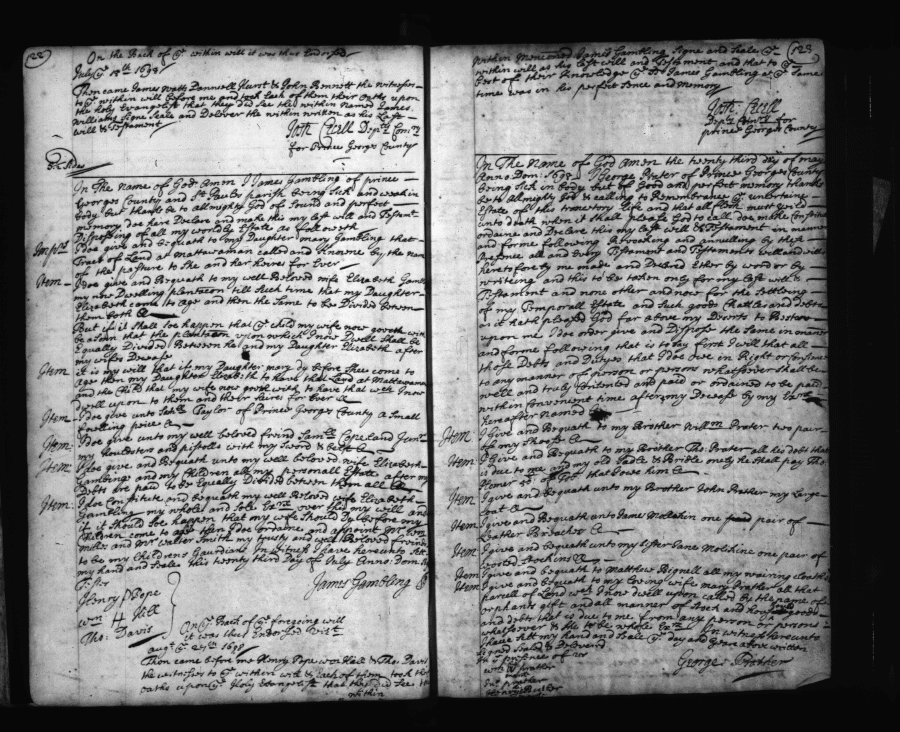 (122)
On the Back of ye within will it was thus Endorsed
July ye 18th 1698
Then came James Watt Dannell Hurst & John Bennett the witnesses
to ye within will before me and took Each of them their Oaths upon
the Holy Evangelist that they did See the within Named James
Williams Signe Seale and Deliver the within written as his Last
will & Testament
Josh Cecill Depty Comry
for Prince Georges County
In The Name of God Amen I James Gambling of prince
Georges County and St Pauls perrish being Sick and weak in
body but thanks be to allmighty God of Sound and perfect
memory doe here Declare and make this my last will and Testamt
Disposing of all my worldly Estate as followeth
I doe give and bequath to my Daughter mary Gambling that
Track of Land at Mattawaman called and Knowne by the name
of the pasture to She and her heires for Ever
Item I doe give and bequath to my well Beloved wife Elizabeth
my now Dwelling plantacon till Such time that my Daughter
Elizabeth come to age and then the Same to be Divided between
them both &
But if it Shall Soe happen that ye child my wife now goeth with
be a Son that the plantacon upon which I now dwell Shall be
Equally Divided Between ha and my Daughter Elizabeth after
my wifes Decease
Item it is my will that if my Daughter mary dy before Shee come to
Age then my Daughter Elizabeth to have that Land at Mattawaman
and the Child that my wife now goes with to have that wch I now
dwell upon to them and their heires for Ever &
Item I doe give unto Taylor of Prince Georges County a Small
fowling peice &
Item I doe give unto my well beloved freind Samll Copeland Junr
my houlsters and pistolls with my Sword & Belt &
Item I doe give and Bequath unto my well beloved wife Elizabeth
Gambling and my Children all my personall Estate after my
Debts are paid to be Equally Divided between them all &
Item I doe Constitute and bequath my well Beloved wife Elizabeth
Gambling my whole and Sole over this my will and
if it should Soe happen that my wife should Dy before my
Children come to age then I doe ordaine and Appoint Mr
and Mr Walter Smith my trusty and well Beloved freinds
to be my Childrens Gaurdians In witness I have hereunto Sett
my hand and Seale this twenty third Day of July Anno: Dom:
James Gambling
Henry Pope
wm H Hill
Tho: Davis
On ye Back of ye foregoing will
it was thus Endorsed Vizt
augt ye 27th 1698
Then came before me Henry Pope wm Hill & Tho: Davis
the wittnesses to ye within will & Each of them took their
oaths upon ye Holy Evangelist that they did See the
within
(123)
within Menconed James Gambling Signe and Seale ye
within will as his last will and Testament and that to ye
best of their Knowledge ye Sd James Gambling at ye Same
time was in his perfect Sence and Memory
Josh Cecill
Depty Comry for
prince Georges County
In The Name of God Amen the twenty third day of may
Anno Dom: 1698 I George Prater of Prince Georges County
being Sick in body but of Good and perfect memory thanks
be to allmighty God & calling to Remembrance ye uncertaine
Estate of this transitory Life and that all flesh must yeild
unto death when it shall please God to call doe make Constitute
ordaine and Declare this my last will & Testament in manner
and forme following Revoaking and annulling by these
presence all and Every Testament and Testaments will and wills
heretofore by me made and Declared Either by word or by
writeing and this to be taken only for my last will &
Testament and none other and now for the Setteling
of my Temporall Estate and Such goods Chattles and Debts
as it hath pleased God far above my Deserts to Bestow
upon me I doe order give and Dispose the Same in manner
and forme following that is to Say first I will that all
those Debts and Dutyes that I doe owe in Right or Conscience
to any manner of person or persons whatsoever shall be
well and truly Contented and paid or ordained to be paid
within Convenient time after my Decease by my
hereafter Named
Item I Give and Bequath to my Brother Willm Prater two pair
of my Shooes &
Item I Give and Bequath to my Brother Tho Prater all his debt that
is due to me and my old Sadle & Bridle only he shall pay Tho
Homer of Tob that I owe him &
Item I give and bequath unto my Brother John Prather my Large
Coat &
Item I give and Bequath unto James Mollakin one pair of
Leather Breeches &
Item I give and bequath unto my Sister Jane Molikine one pair of
wosted Stockins &
Item I give and bequath to Matthew Bignell all my wairing cloaths
Item I give and bequath to my Loving wife mary Prather all that
parcell of Land wch I now dwell upon called by the name of
orphants gift and all manner of Stock and houshold goods
and debts that is due to me from any person or persons
whatsoever & her to be whole In witness hereunto
I have Sett my hand and Seale ye day and year above written
Signed Seald & Delivered
in ye presence of us
George Prather